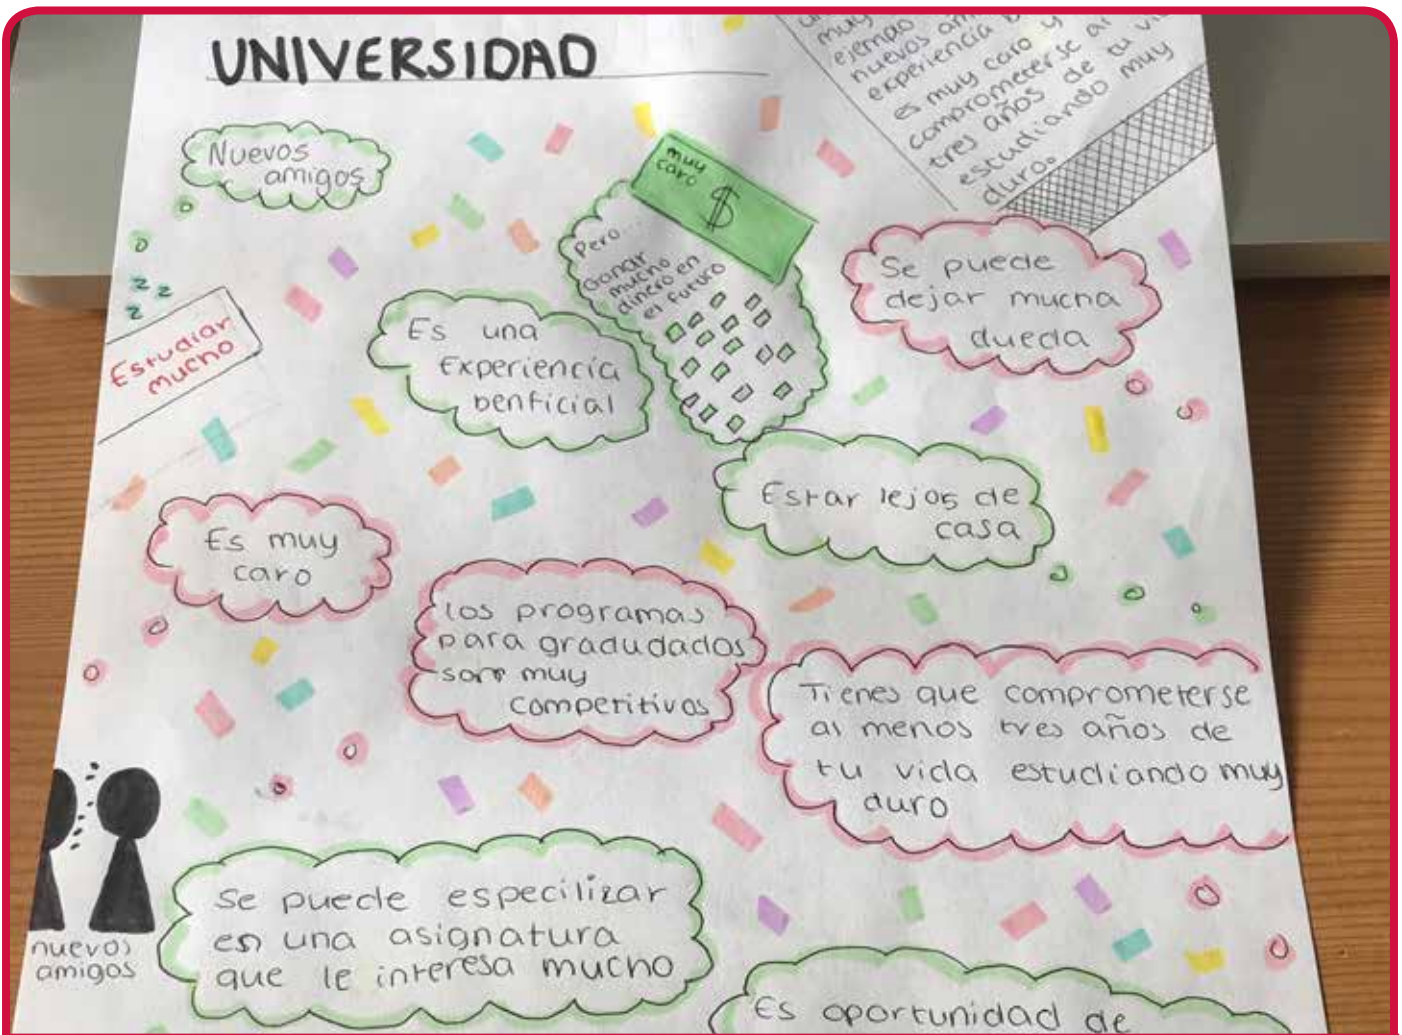 UNIVERSIDAD
muy
ejemplo
nuevos
experiencia
es muy caro y
comprometerse al
tres años de tu
estudiando muy
duro.
Nuevos
amigos
muy
caro
$
Pero...
Ganar
mucho
dinero en
el futuro
Se puede
dejar mucha
dueda
z z
z
Estudiar
mucho
Es una
Experiencia
benficial
Estar lejos de
casa
Es muy
caro
Los programas
para gradudados
son muy
competitivos
Tienes que comprometerse
al menos tres años de
tu vida estudiando muy
duro
nuevos
amigos
Se puede especilizar
en una asignatura
que le interesa mucho
Es oportunidad de